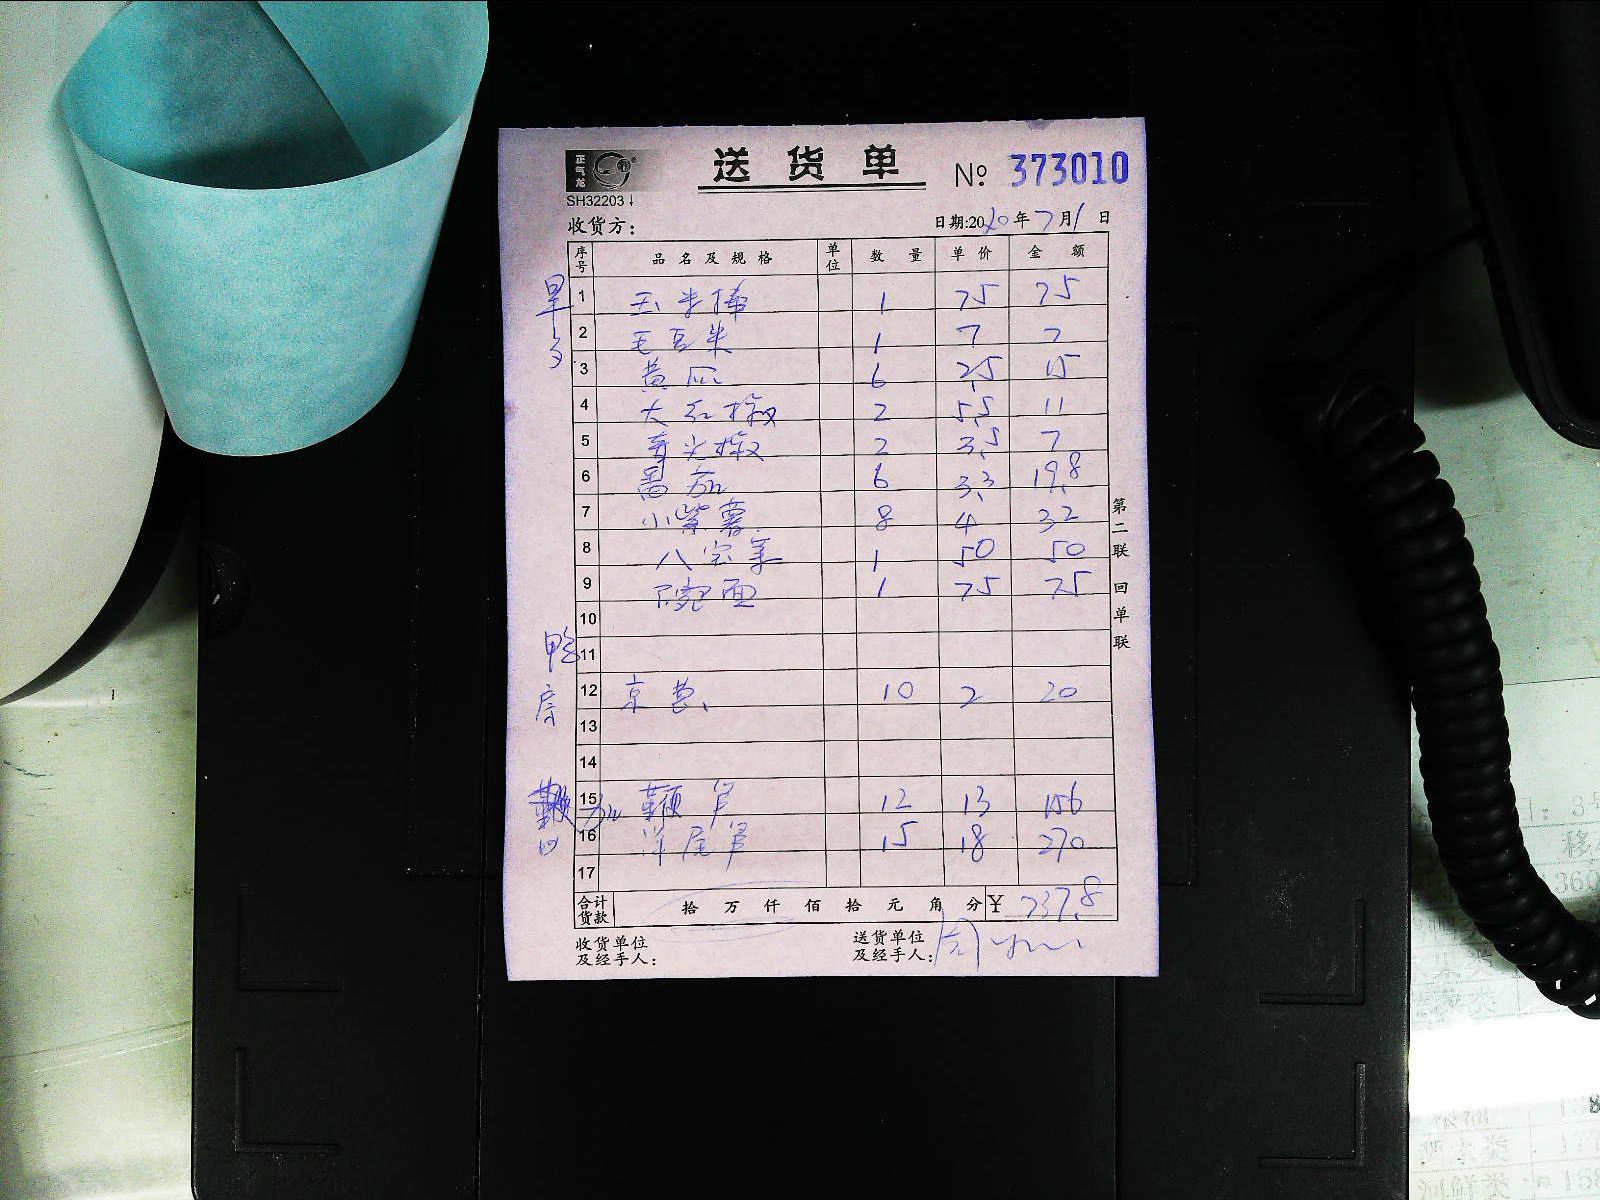 正气龙
送货单 № 373010
SH32203↓
收货方： 日期:2020年7月1日
序号 品名及规格 单位 数量 单价 金额
早
1 玉米棒 1 75 75
2 毛豆米 1 7 7
3 黄瓜 6 2.5 15
4 大红椒 2 5.5 11
5 青尖椒 2 3.5 7
6 番茄 6 3.3 19.8
7 小紫薯 8 4 32
8 八宝 1 50 50
9 碗面 1 75 75
10
鸭
11
12 京葱 10 2 20
房
13
14
15 12 13 156
16 15 18 270
17
合计货款 拾 万 仟 佰 拾 元 角 分 ¥ 737.8
收货单位及经手人： 送货单位及经手人：
第二联 回单联
移
360
类
类
138
类
177
河鲜类
158